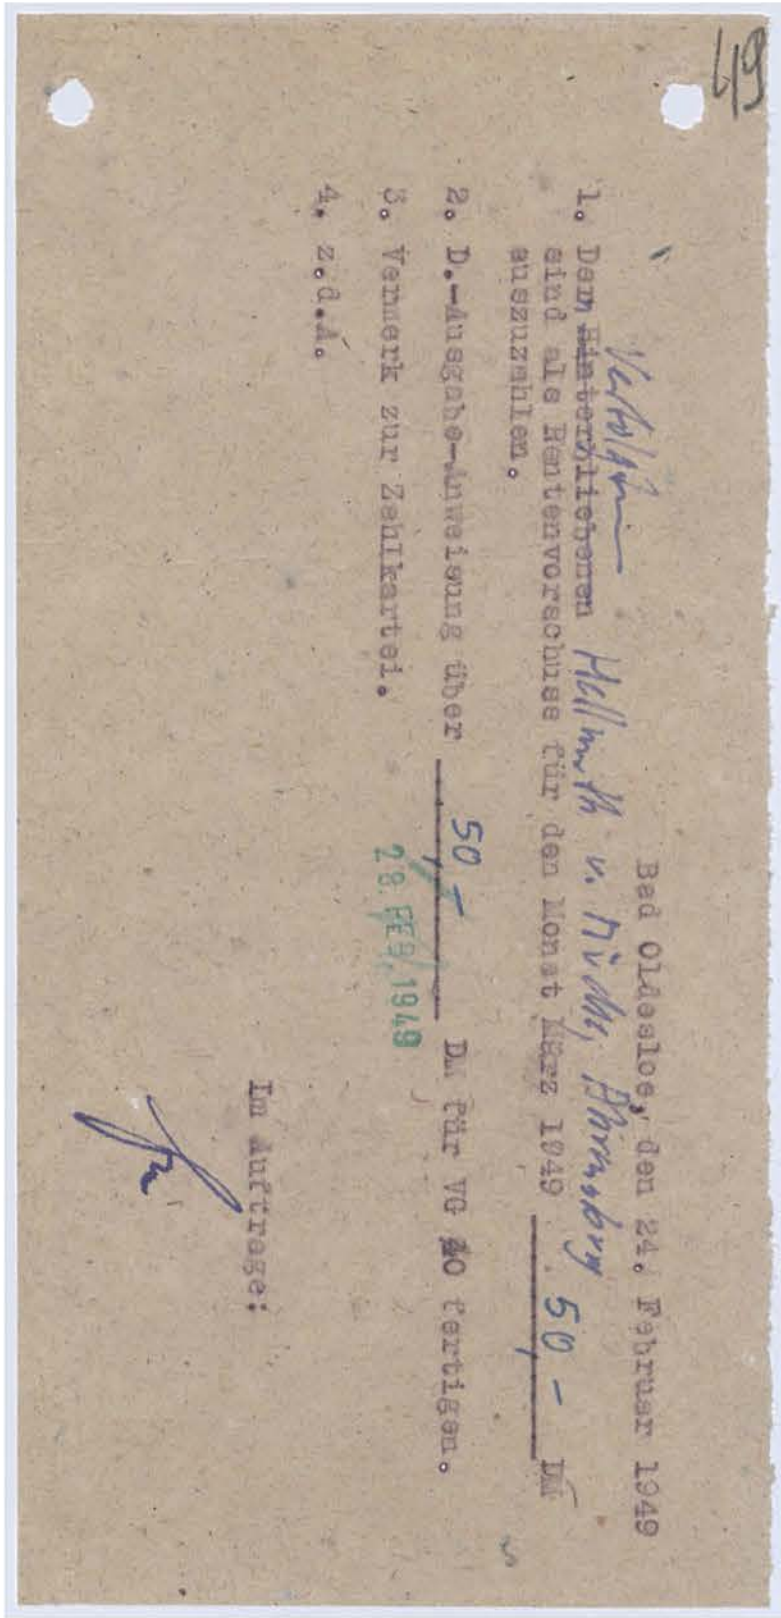 49
Bad Oldesloe, den 24. Februar 1949
Verfolgten
1. Dem Hinterbliebenen Hellmuth v. Mücke, Ahrensburg
sind als Rentenvorschuss für den Monat März 1949 50,- DM
auszuzahlen.
2. D.-Ausgabe-Anweisung über 50,- DM für VG 20 fertigen.
3. Vermerk zur Zahlkartei.
28. FEB. 1949
4. z.d.A.
Im Auftrage: